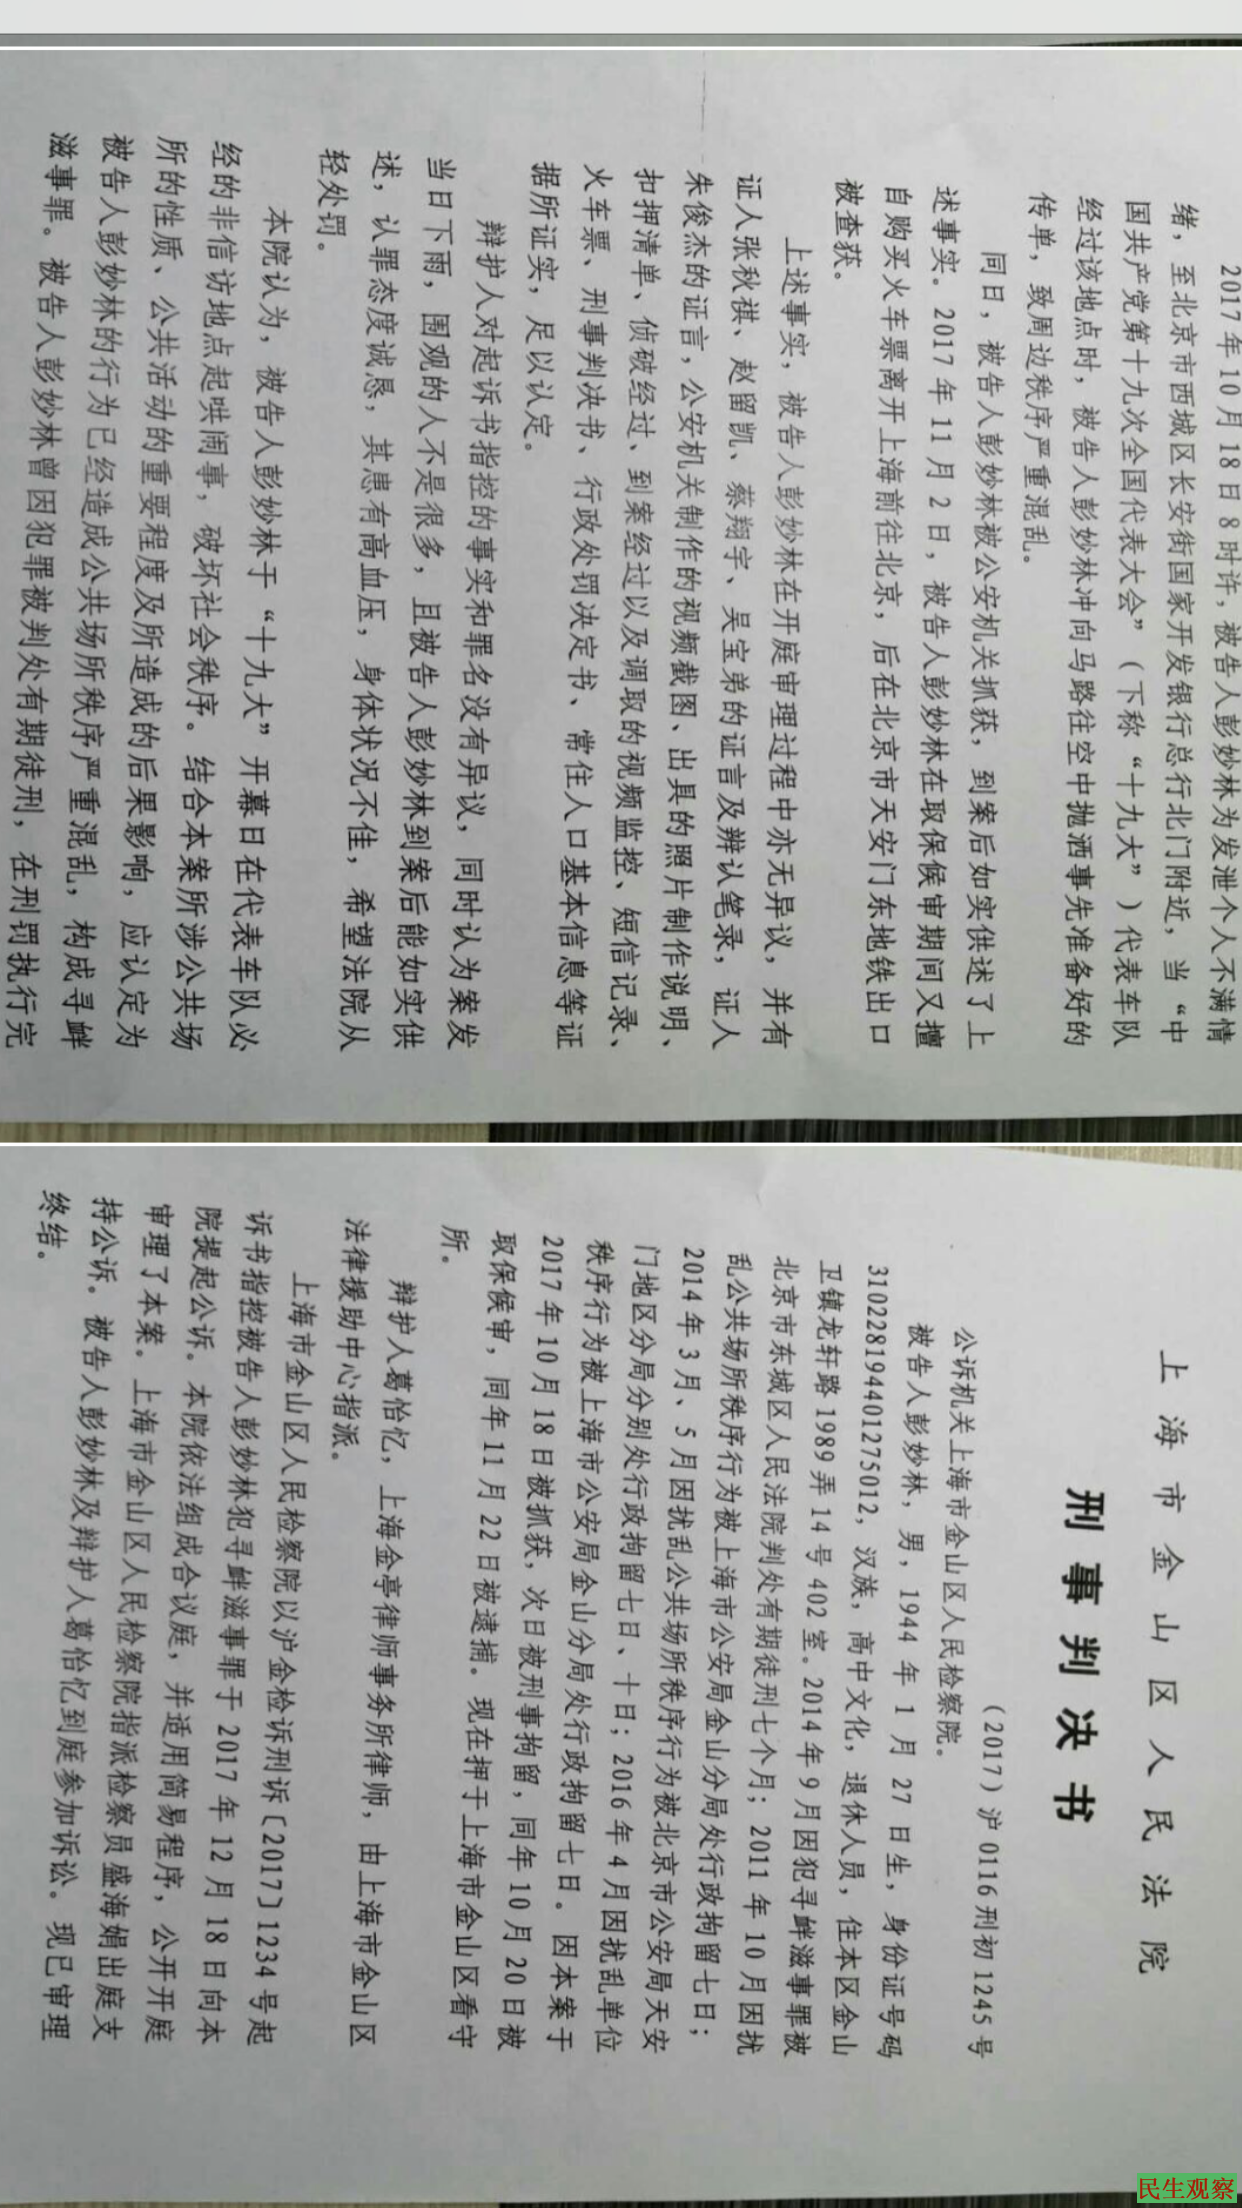 上海市金山区人民法院
刑事判决书
（2017）沪0116刑初1245号
公诉机关上海市金山区人民检察院。
被告人彭妙林，男，1944年1月27日生，身份证号码
310228194401275012，汉族，高中文化，退休人员，住本区金山
卫镇龙轩路1989弄14号402室。2014年9月因犯寻衅滋事罪被
北京市东城区人民法院判处有期徒刑七个月；2011年10月因扰
乱公共场所秩序行为被上海市公安局金山分局处行政拘留七日；
2014年3月、5月因扰乱公共场所秩序行为被北京市公安局天安
门地区分局分别处行政拘留七日、十日；2016年4月因扰乱单位
秩序行为被上海市公安局金山分局处行政拘留七日。因本案于
2017年10月18日被抓获，次日被刑事拘留，同年10月20日被
取保候审，同年11月22日被逮捕。现在押于上海市金山区看守
所。
辩护人葛怡忆，上海金亭律师事务所律师，由上海市金山区
法律援助中心指派。
上海市金山区人民检察院以沪金检诉刑诉〔2017〕1234号起
诉书指控被告人彭妙林犯寻衅滋事罪于2017年12月18日向本
院提起公诉。本院依法组成合议庭，并适用简易程序，公开开庭
审理了本案。上海市金山区人民检察院指派检察员盛海娟出庭支
持公诉。被告人彭妙林及辩护人葛怡忆到庭参加诉讼。现已审理
终结。
2017年10月18日8时许，被告人彭妙林为发泄个人不满情
绪，至北京市西城区长安街国家开发银行总行北门附近，当“中
国共产党第十九次全国代表大会”（下称“十九大”）代表车队
经过该地点时，被告人彭妙林冲向马路往空中抛洒事先准备好的
传单，致周边秩序严重混乱。
同日，被告人彭妙林被公安机关抓获，到案后如实供述了上
述事实。2017年11月2日，被告人彭妙林在取保候审期间又擅
自购买火车票离开上海前往北京，后在北京市天安门东地铁出口
被查获。
上述事实，被告人彭妙林在开庭审理过程中亦无异议，并有
证人张秋祺、赵留凯、蔡翔宇、吴宝弟的证言及辨认笔录，证人
朱俊杰的证言，公安机关制作的视频截图、出具的照片制作说明、
扣押清单、侦破经过、到案经过以及调取的视频监控、短信记录、
火车票、刑事判决书、行政处罚决定书、常住人口基本信息等证
据所证实，足以认定。
辩护人对起诉书指控的事实和罪名没有异议，同时认为案发
当日下雨，围观的人不是很多，且被告人彭妙林到案后能如实供
述，认罪态度诚恳，其患有高血压，身体状况不佳，希望法院从
轻处罚。
本院认为，被告人彭妙林于“十九大”开幕日在代表车队必
经的非信访地点起哄闹事，破坏社会秩序。结合本案所涉公共场
所的性质、公共活动的重要程度及所造成的后果影响，应认定为
被告人彭妙林的行为已经造成公共场所秩序严重混乱，构成寻衅
滋事罪。被告人彭妙林曾因犯罪被判处有期徒刑，在刑罚执行完
民生观察